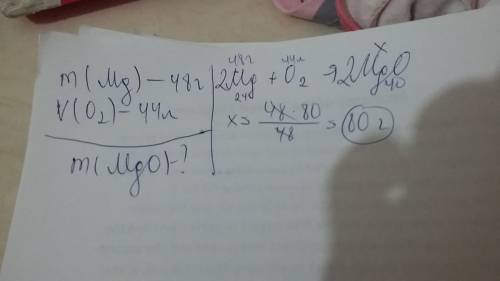 m(Mg) - 48г
V(O₂) - 44л
m(MgO) - ?
48г 44л x
2Mg + O₂ → 2MgO
240 40
x = 48·80/48 = 80 г